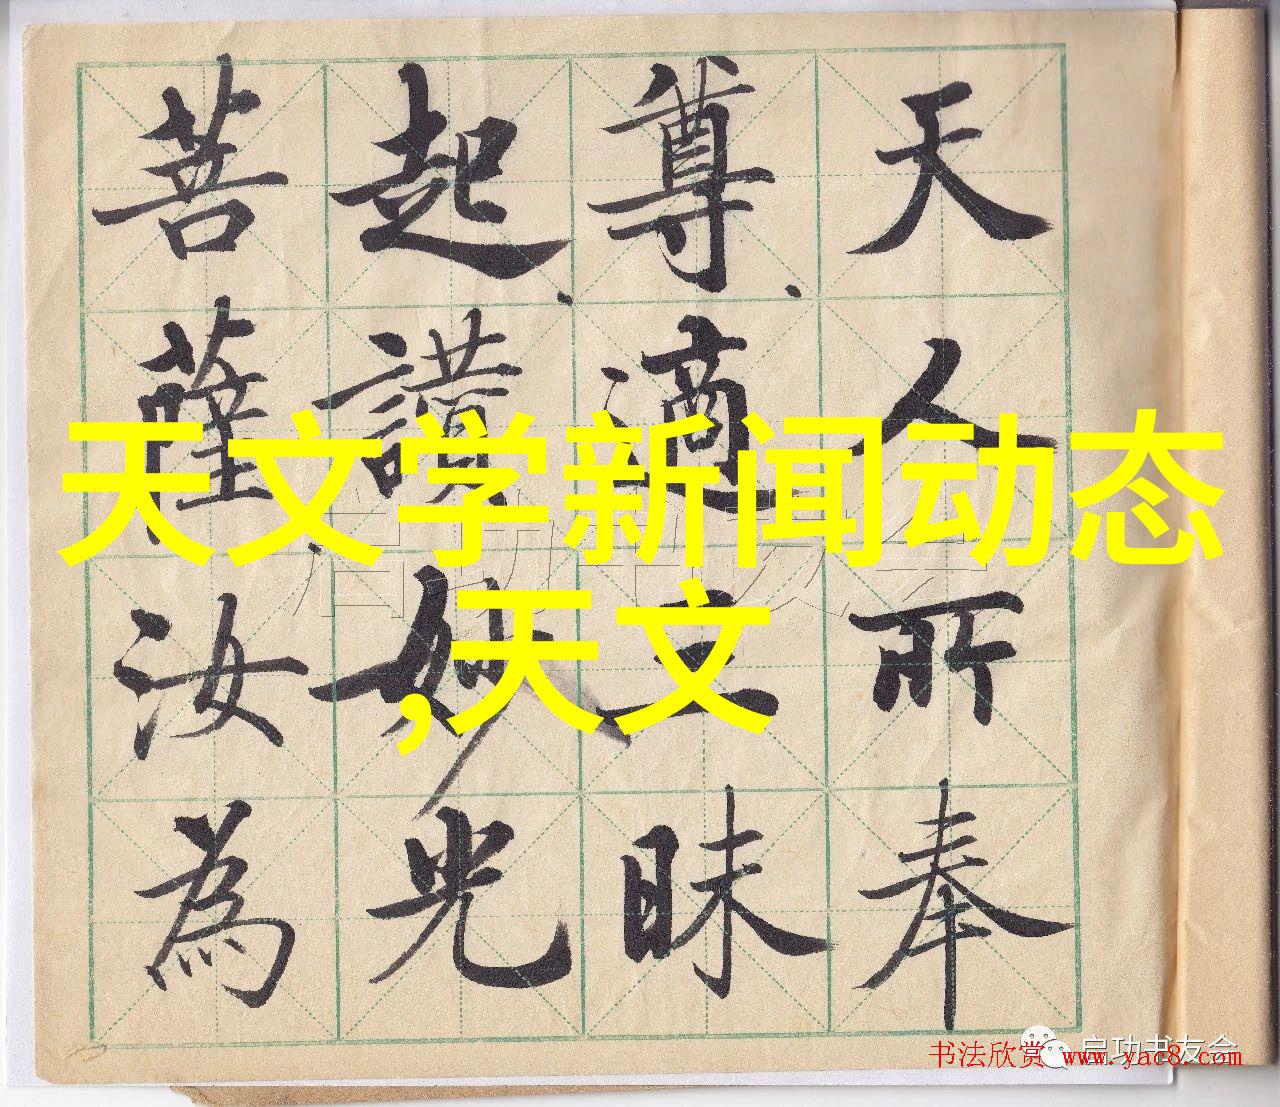 天人所奉
尊適三昧
起讃妙光
菩薩汝為
天文学新闻动态
,天文
启功书友会
书法欣赏 www.yac8.com
启功书友会